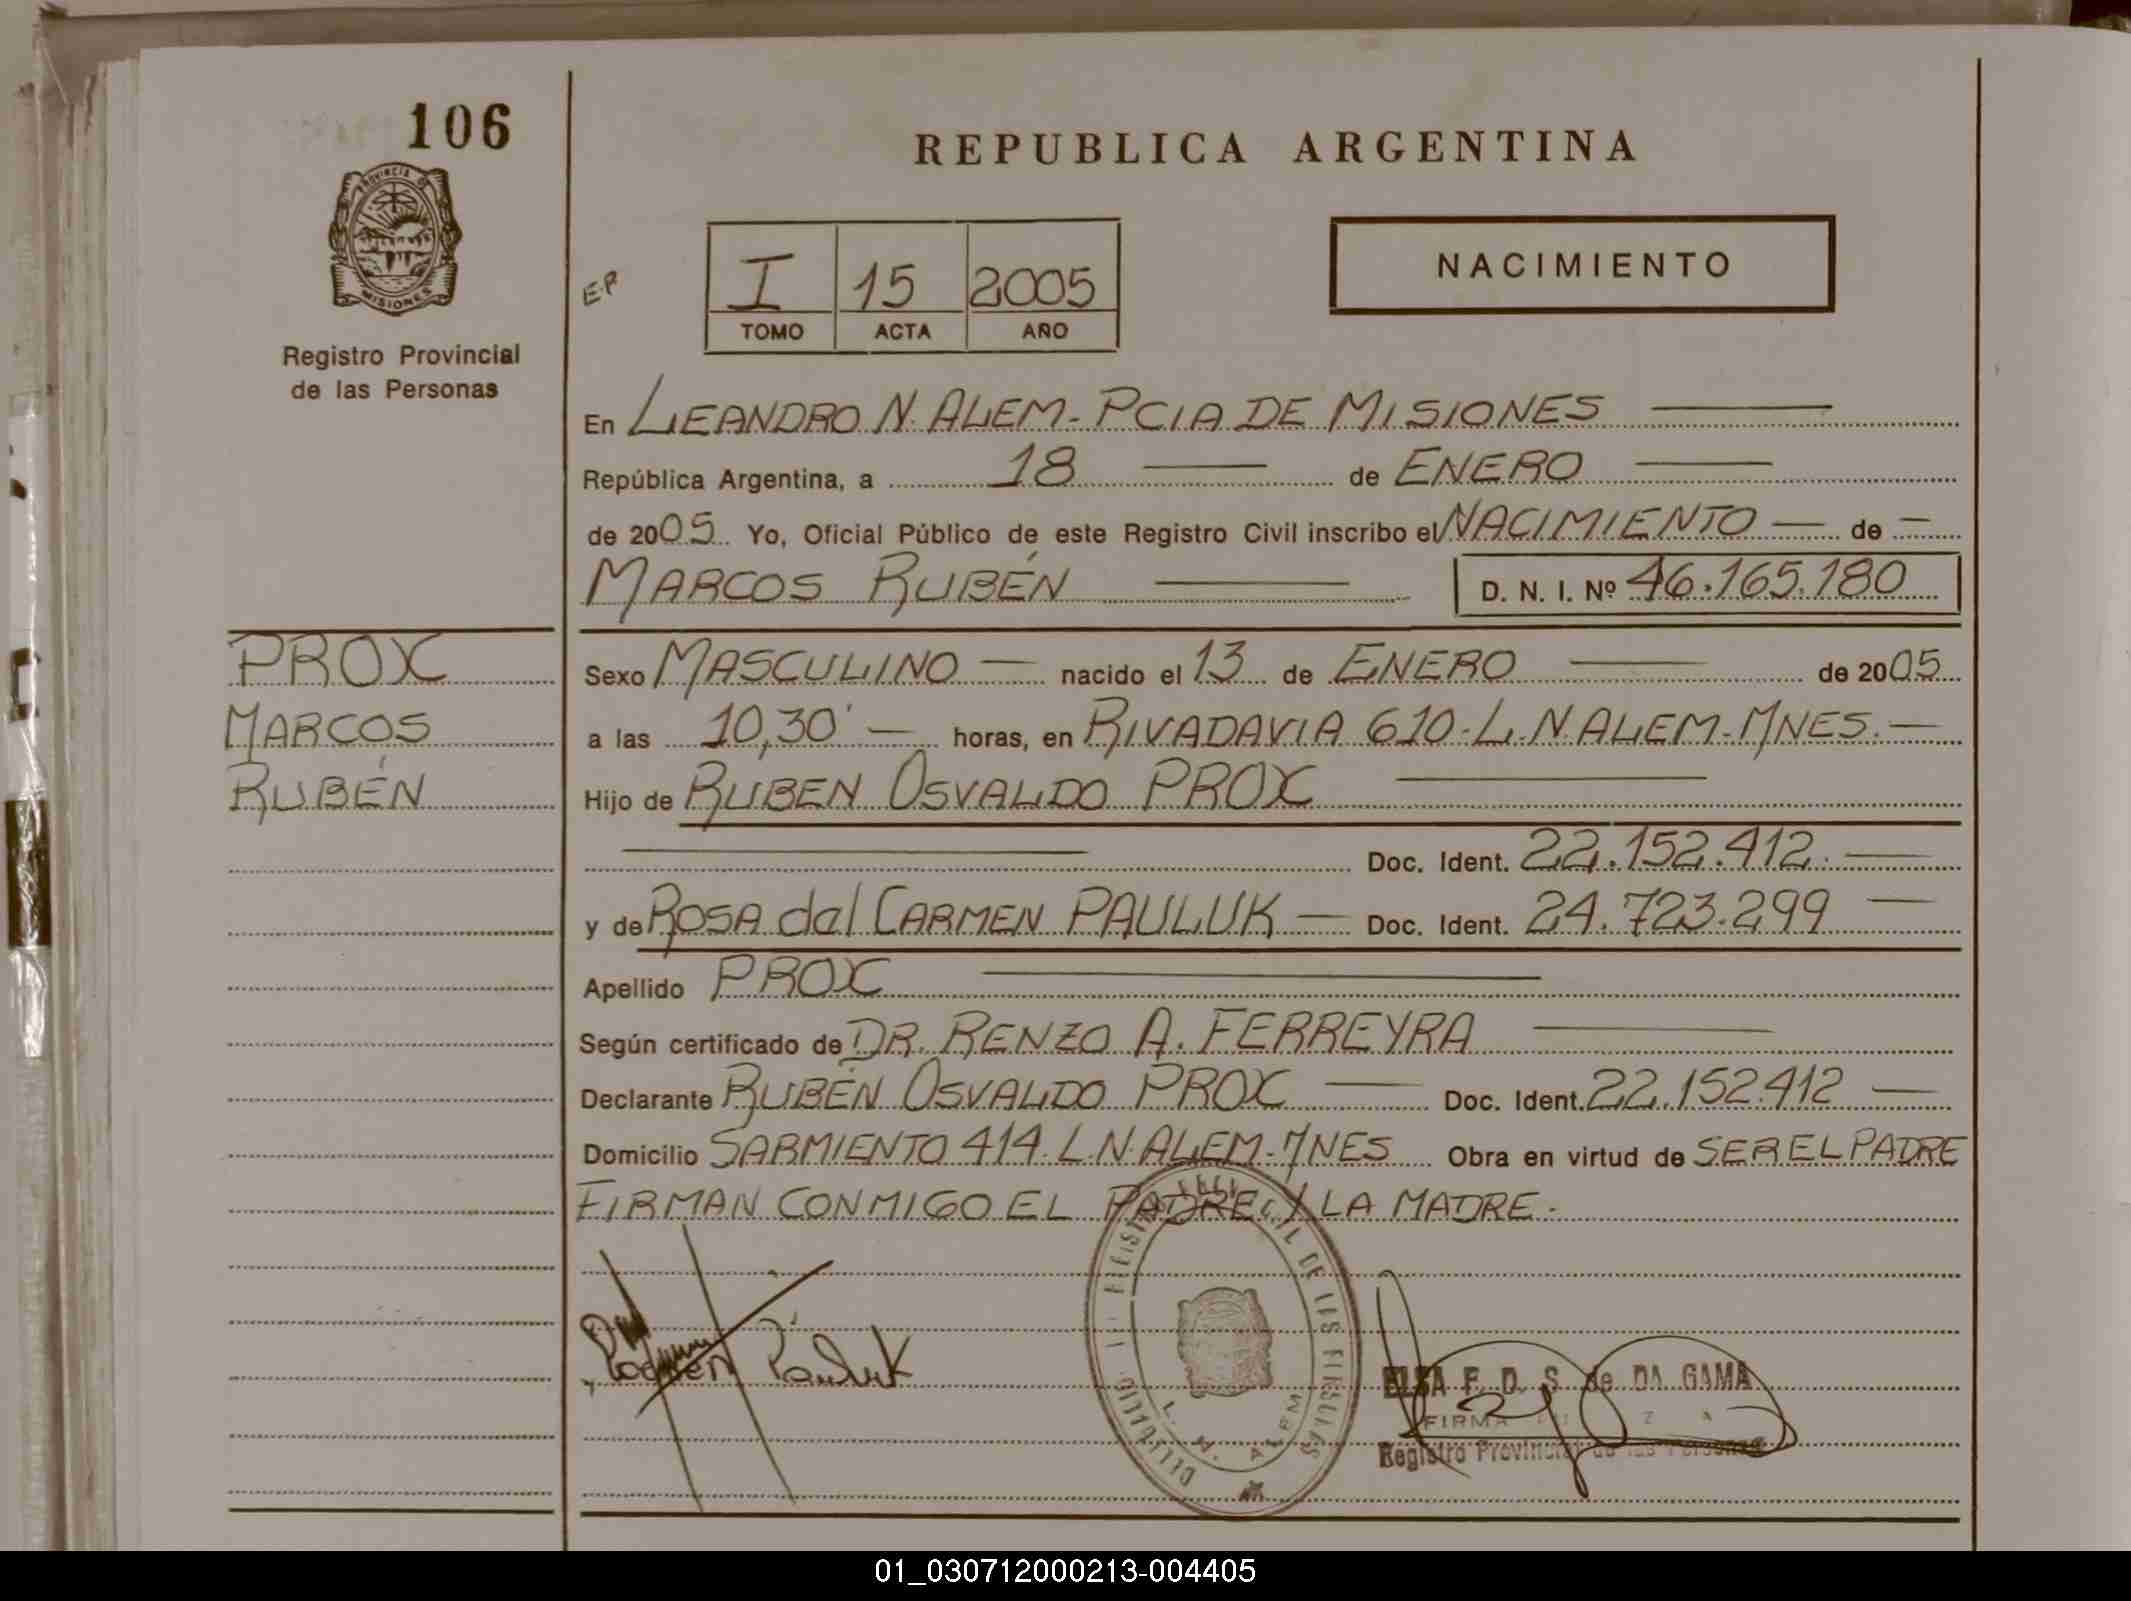 106
PROVINCIA DE
MISIONES
Registro Provincial
de las Personas
REPUBLICA ARGENTINA
E.P
I 15 2005
TOMO ACTA AÑO
NACIMIENTO
En LEANDRO N. ALEM - PCIA DE MISIONES
República Argentina, a 18 de ENERO
de 2005 Yo, Oficial Público de este Registro Civil inscribo el NACIMIENTO — de —
MARCOS RUBÉN D. N. I. Nº 46.165.180
PROX
MARCOS
RUBÉN
Sexo MASCULINO — nacido el 13 de ENERO — de 2005
a las 10,30' — horas, en RIVADAVIA 610-L.N.ALEM-MNES.—
Hijo de RUBEN OSVALDO PROX
Doc. Ident. 22.152.412.—
y de ROSA del CARMEN PAULUK — Doc. Ident. 24.723.299 —
Apellido PROX
Según certificado de DR. RENZO A. FERREYRA
Declarante RUBÉN OSVALDO PROX — Doc. Ident. 22.152.412 —
Domicilio SARMIENTO 414. L.N.ALEM-MNES Obra en virtud de SER EL PADRE
FIRMAN CONMIGO EL PADRE Y LA MADRE.
Pauluk
REGISTRO CIVIL DE LAS PERSONAS
L. N. ALEM
ELSA F. D. S. de DA GAMA
FIRMA
Registro Provincial de las Personas
01_030712000213-004405